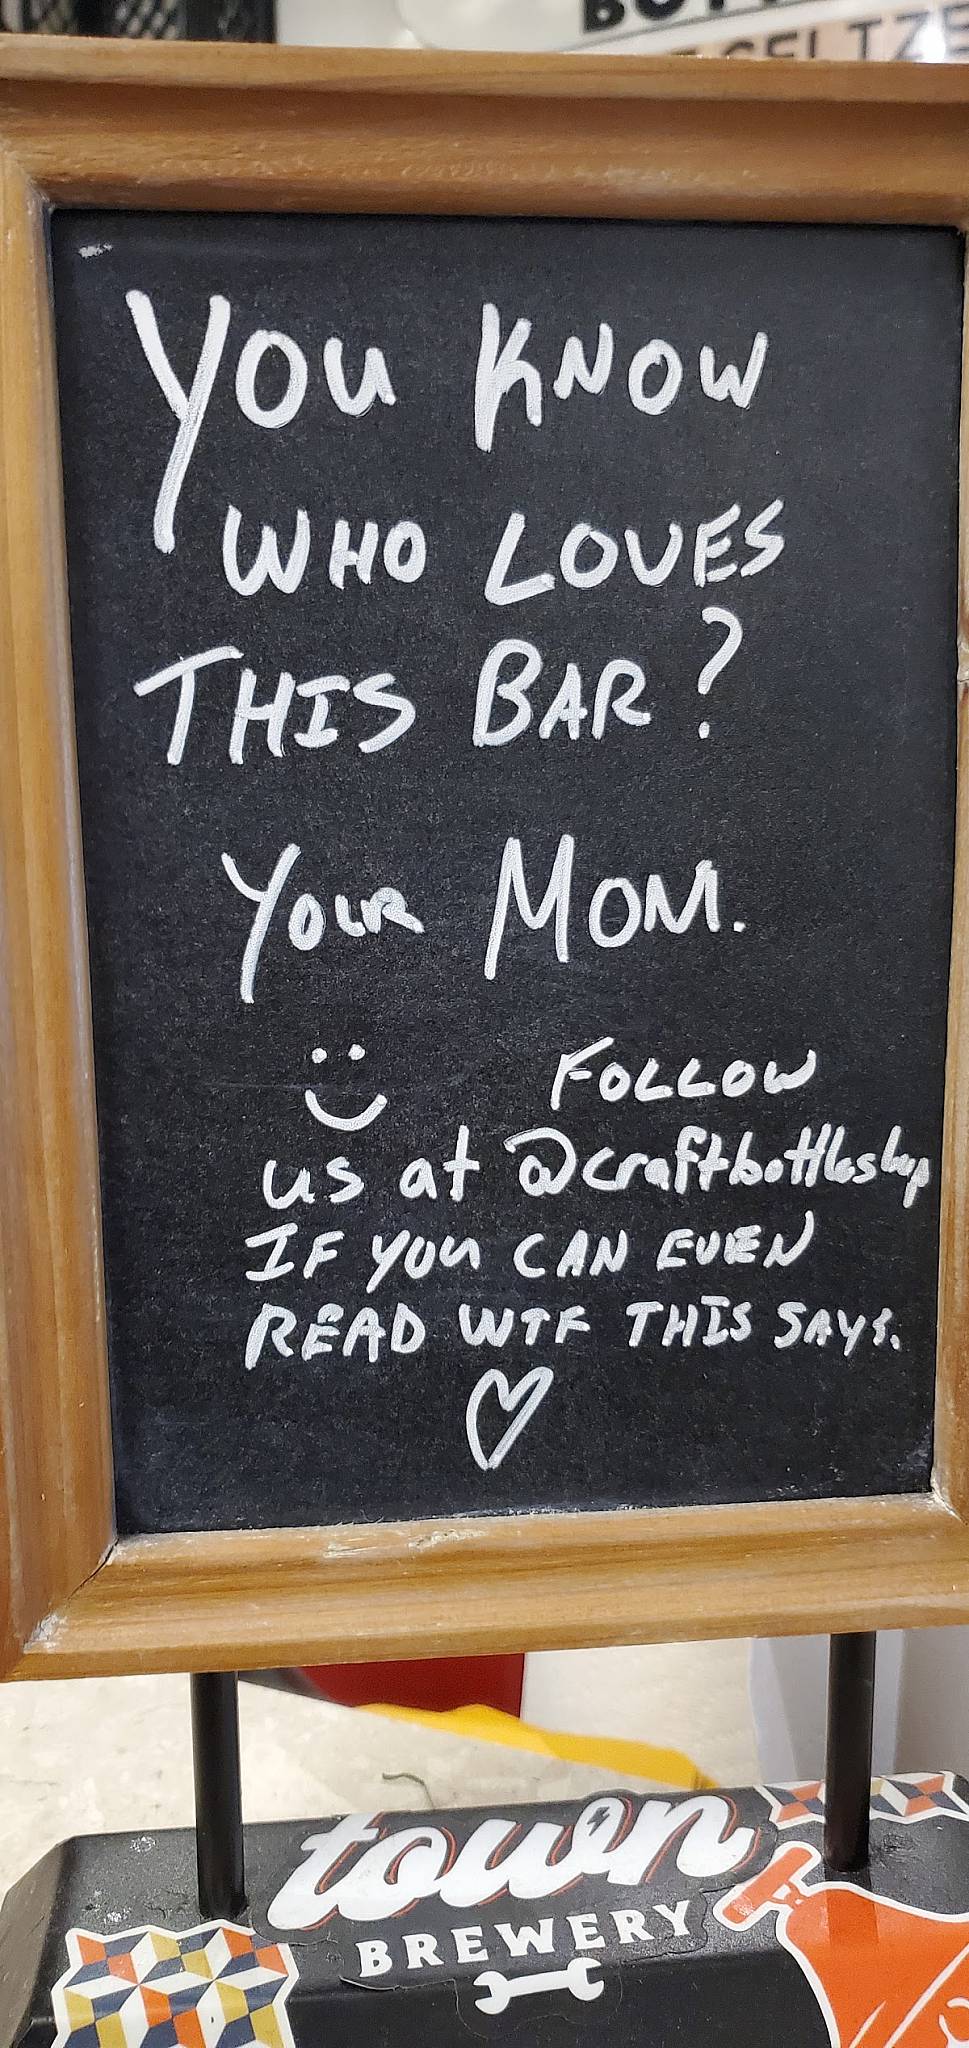 SELTZE
You KNOW
WHO LOVES
THIS BAR?
YOUR MOM.
FOLLOW
us at @craftbottleshop
IF YOU CAN EVEN
READ WTF THIS SAYS.
town
BREWERY